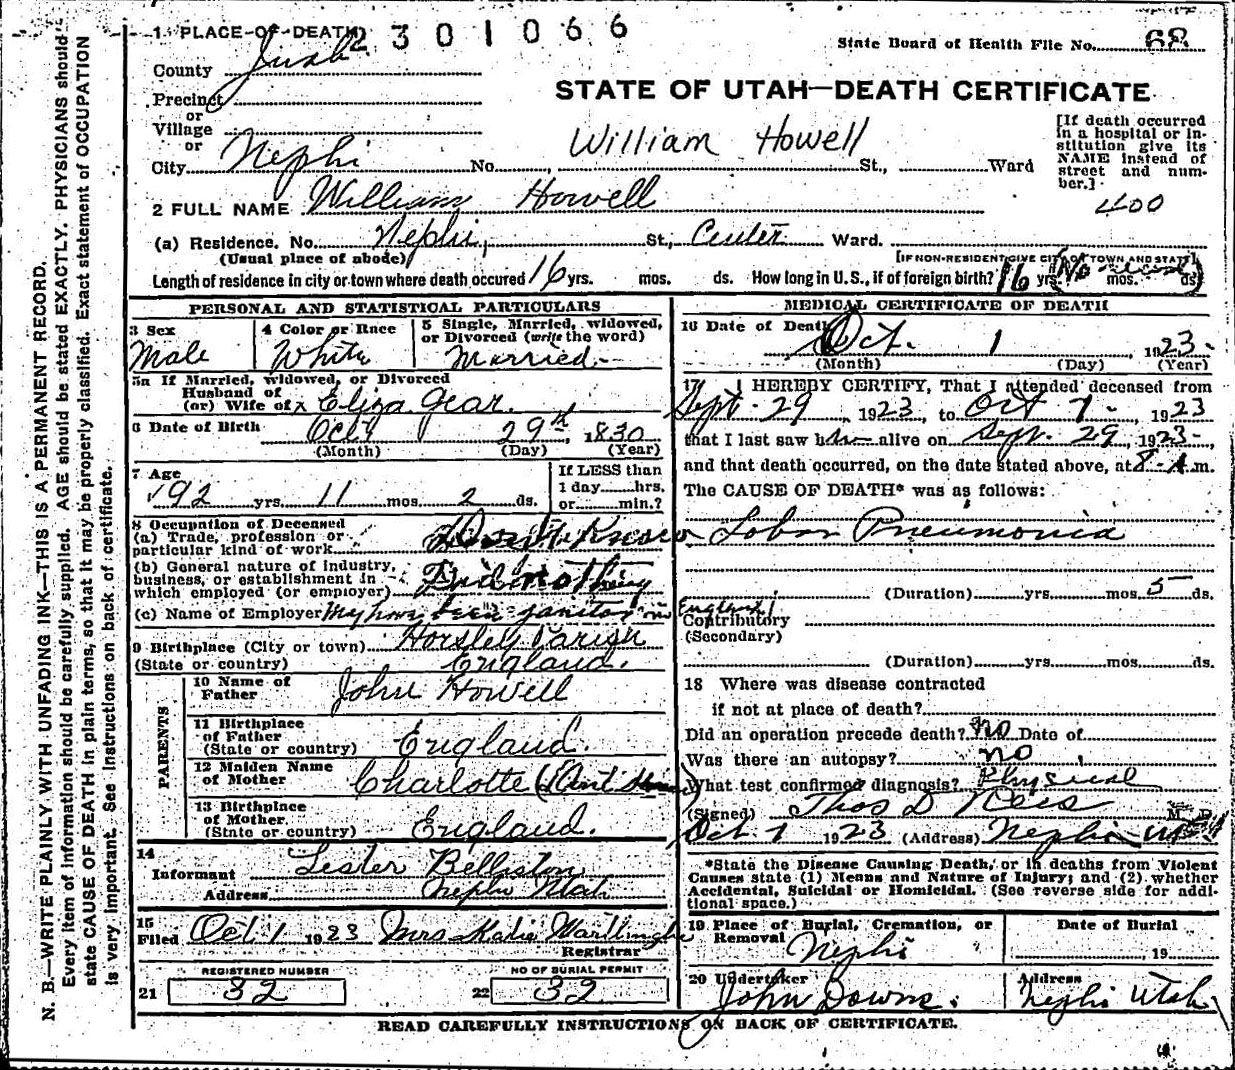 N. B.—WRITE PLAINLY WITH UNFADING INK—THIS IS A PERMANENT RECORD.
Every item of information should be carefully supplied. AGE should be stated EXACTLY. PHYSICIANS should
state CAUSE OF DEATH in plain terms, so that it may be properly classified. Exact statement of OCCUPATION
is very important. See Instructions on back of certificate.
1 PLACE OF DEATH 2301066
State Board of Health File No. 68
County Juab
Precinct
or
Village
or
City Nephi No. St., Ward
STATE OF UTAH—DEATH CERTIFICATE
William Howell
[If death occurred
in a hospital or in-
stitution give its
NAME instead of
street and num-
ber.]
400
2 FULL NAME William Howell
(a) Residence. No. Nephi, St., Center Ward.
(Usual place of abode) [IF NON-RESIDENT GIVE CITY OR TOWN AND STATE]
Length of residence in city or town where death occured 16 yrs. mos. ds. How long in U.S., if of foreign birth? 16 yrs. (No mos. ds)
PERSONAL AND STATISTICAL PARTICULARS
3 Sex
Male
4 Color or Race
White
5 Single, Married, widowed,
or Divorced (write the word)
Married
5a If Married, widowed, or Divorced
Husband of
(or) Wife of Eliza Gear.
6 Date of Birth Oct 29th, 1830
(Month) (Day) (Year)
7 Age
92 yrs. 11 mos. 2 ds.
If LESS than
1 day hrs.
or min.?
8 Occupation of Deceased
(a) Trade, profession or
particular kind of work Don't Know
(b) General nature of Industry,
business, or establishment in
which employed (or employer) Did nothing
(c) Name of Employer May have been janitor in
England
9 Birthplace (City or town) Horsley Parish
(State or country) England.
PARENTS
10 Name of
Father John Howell
11 Birthplace
of Father
(State or country) England.
12 Maiden Name
of Mother Charlotte (Dont Know)
13 Birthplace
of Mother
(State or country) England.
14
Informant Lester Bellston
Address Nephi Utah
15
Filed Oct 1 1923 Mrs Katie
Registrar
21 REGISTERED NUMBER
32
22 NO OF BURIAL PERMIT
32
MEDICAL CERTIFICATE OF DEATH
16 Date of Death Oct. 1, 1923.
(Month) (Day) (Year)
17 I HEREBY CERTIFY, That I attended deceased from
Sept. 29, 1923, to Oct 1, 1923
that I last saw him alive on Sept. 29, 1923,
and that death occurred, on the date stated above, at 8 A.m.
The CAUSE OF DEATH* was as follows:
Lobar Pneumonia
(Duration) yrs. mos. 5 ds.
Contributory
(Secondary)
(Duration) yrs. mos. ds.
18 Where was disease contracted
if not at place of death?
Did an operation precede death? no Date of
Was there an autopsy? no
What test confirmed diagnosis? Physical
(Signed) Thos D Rees M. D.
Oct 1 1923 (Address) Nephi Ut
*State the Disease Causing Death, or in deaths from Violent
Causes state (1) Means and Nature of Injury; and (2) whether
Accidental, Suicidal or Homicidal. (See reverse side for addi-
tional space.)
19 Place of Burial, Cremation, or
Removal Nephi
Date of Burial
, 19
20 Undertaker
John Downs.
Address
Nephi Utah
READ CAREFULLY INSTRUCTIONS ON BACK OF CERTIFICATE.